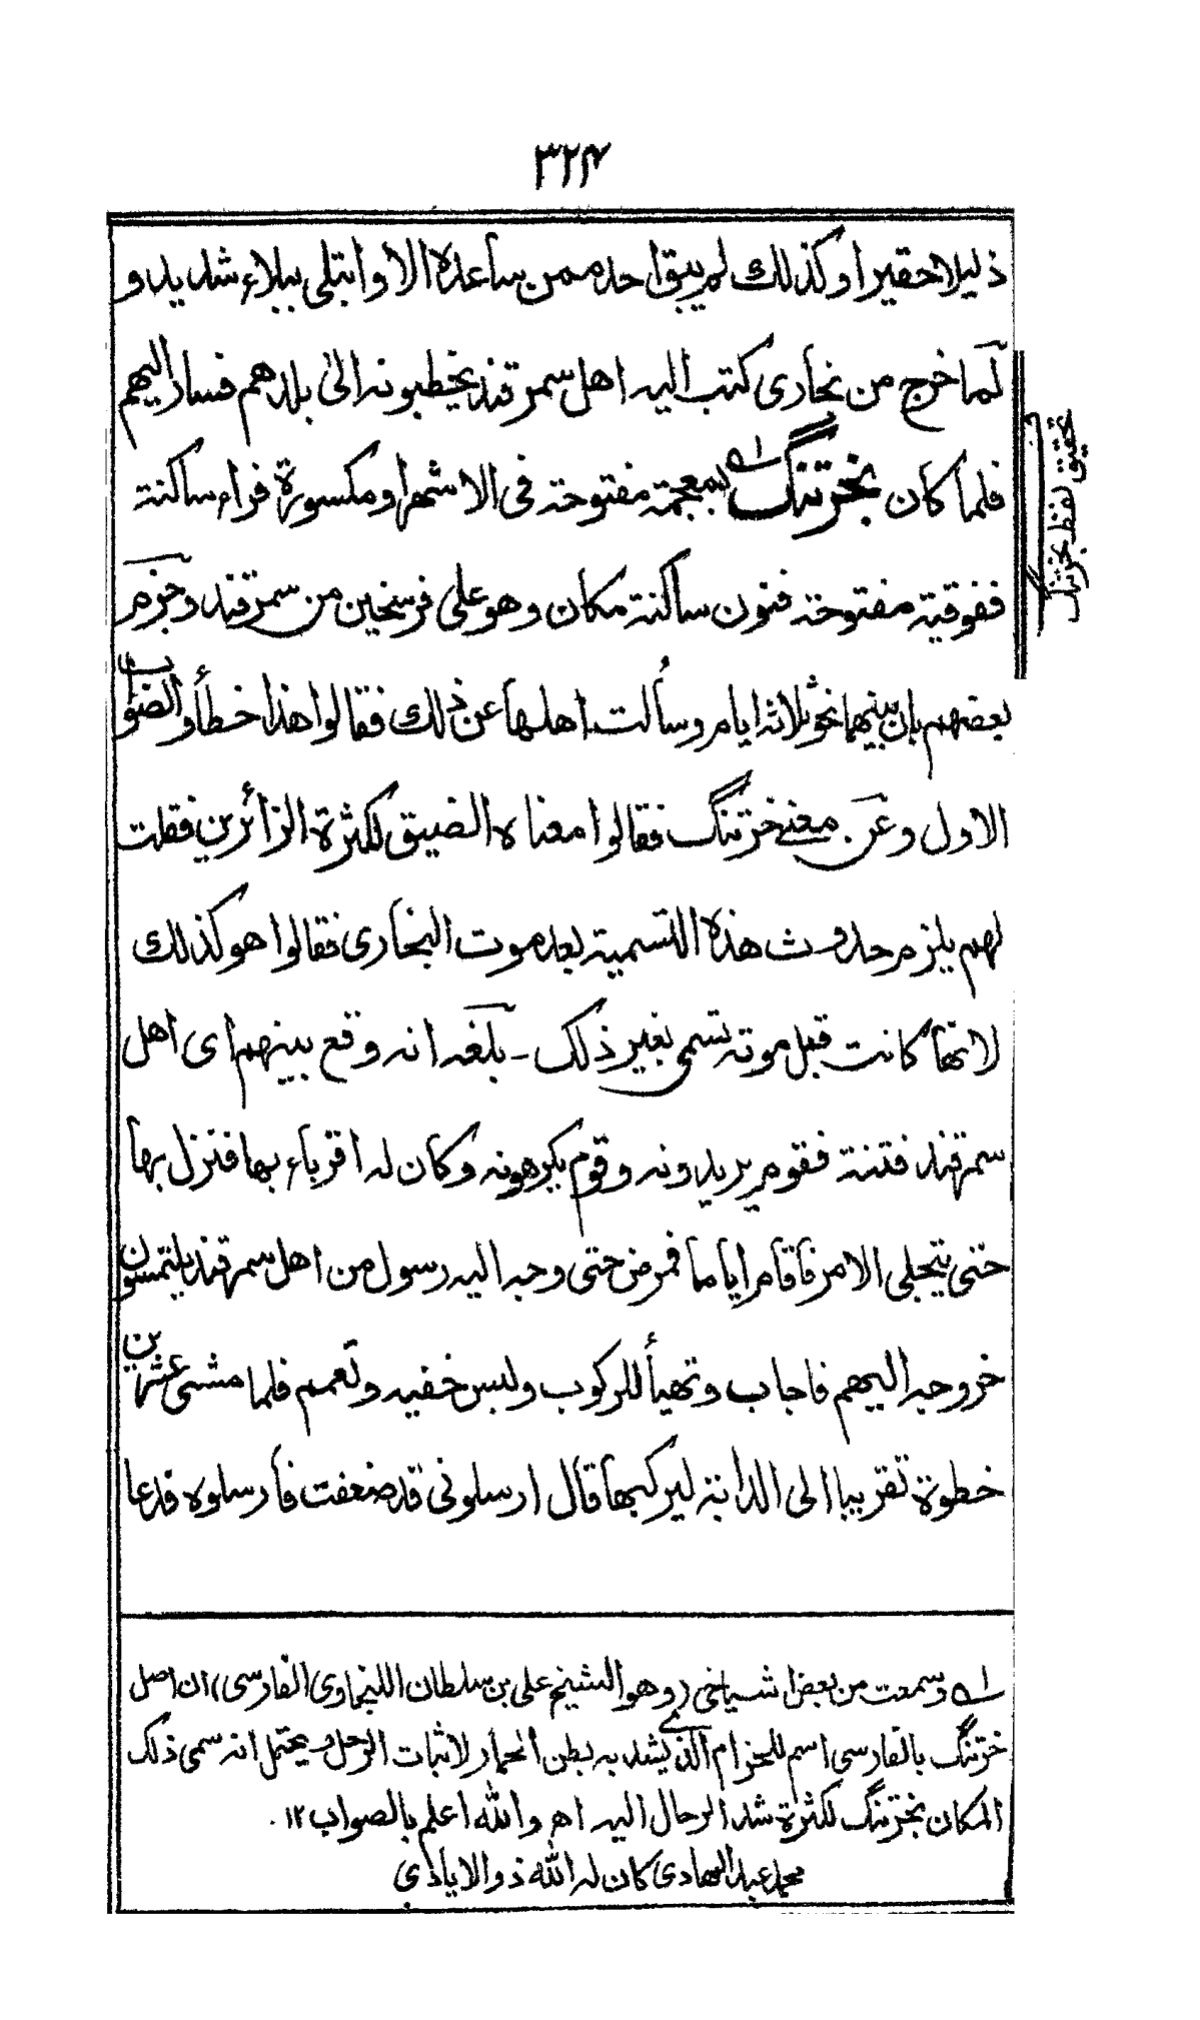 ٣٢٤
ذليلا حقيرا وكذلك لم يبق احد ممن ساعده الا وابتلى ببلاء شديد و
لما خرج من بخارى كتب اليه اهل سمرقند يخطبونه الى بلدهم فسار اليهم
فلما كان بخرتنگ له بمعجمة مفتوحة فى الاشهر او مكسورة فراء ساكنة
ففوقية مفتوحة فنون ساكنة مكان وهو على فرسخين من سمرقند وجزم
بعضهم بان بينهما نحو ثلاثة ايام وسألت اهلها عن ذلك فقالوا هذا خطأ والصواب
الاول وعن معنى خرتنگ فقالوا معناه الضيق لكثرة الزائرين فقلت
لهم يلزم حدوث هذه التسمية بعد موت البخارى فقالوا هو كذلك
لانها كانت قبل موته تسمى بغير ذلك - بلغه انه وقع بينهم اى اهل
سمرقند فتنة فقوم يريدونه وقوم يكرهونه وكان له اقرباء بها فنزل بها
حتى ينجلى الامر فاقام اياما فمرض حتى وجه اليه رسول من اهل سمرقند يلتمسون
خروجه اليهم فاجاب وتهيأ للركوب ولبس خفيه وتعمم فلما مشى عشرين
خطوة تقريبا الى الدابة ليركبها قال ارسلونى قد ضعفت فأرسلوه فدعا
تحقيق لفظ بخرتنگ
له وسمعت من بعض اشياخى (وهو الشيخ على بن سلطان الفارسى) ان اصل
خرتنگ بالفارسى اسم للحزام الذى يشد به بطن الحمار لاثبات الرحل ويحتمل انه سمى ذلك
المكان بخرتنگ لكثرة شد الرحال اليه اه والله اعلم بالصواب ١٢.
محمد عبد الهادى كان له الله ذو الايادى